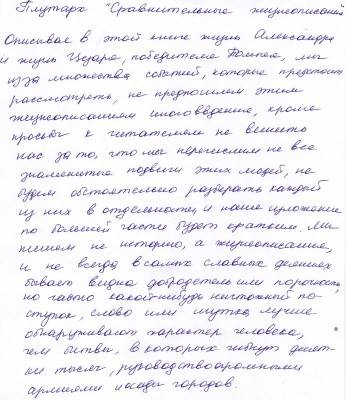 Плутарх "Сравнительные жизнеописания
Описывая в этой книге жизнь Александра
и жизнь Цезаря, победителя Помпея, мы
из-за множества событий, которые предстоит
рассмотреть, не предпошлем этим
жизнеописаниям иного введения, кроме
просьбы к читателям не винить
нас за то, что мы перечислим не все
знаменитые подвиги этих людей, не
будем обстоятельно разбирать каждый
из них в отдельности, и наше изложение
по большей части будет кратким. Мы
пишем не историю, а жизнеописание,
и не всегда в самых славных деяниях
бывает видна добродетель или порочность,
но часто какой-нибудь ничтожный по-
ступок, слово или шутка лучше
обнаруживают характер человека,
чем битвы, в которых гибнут десят-
ки тысяч, руководство огромными
армиями и осады городов.